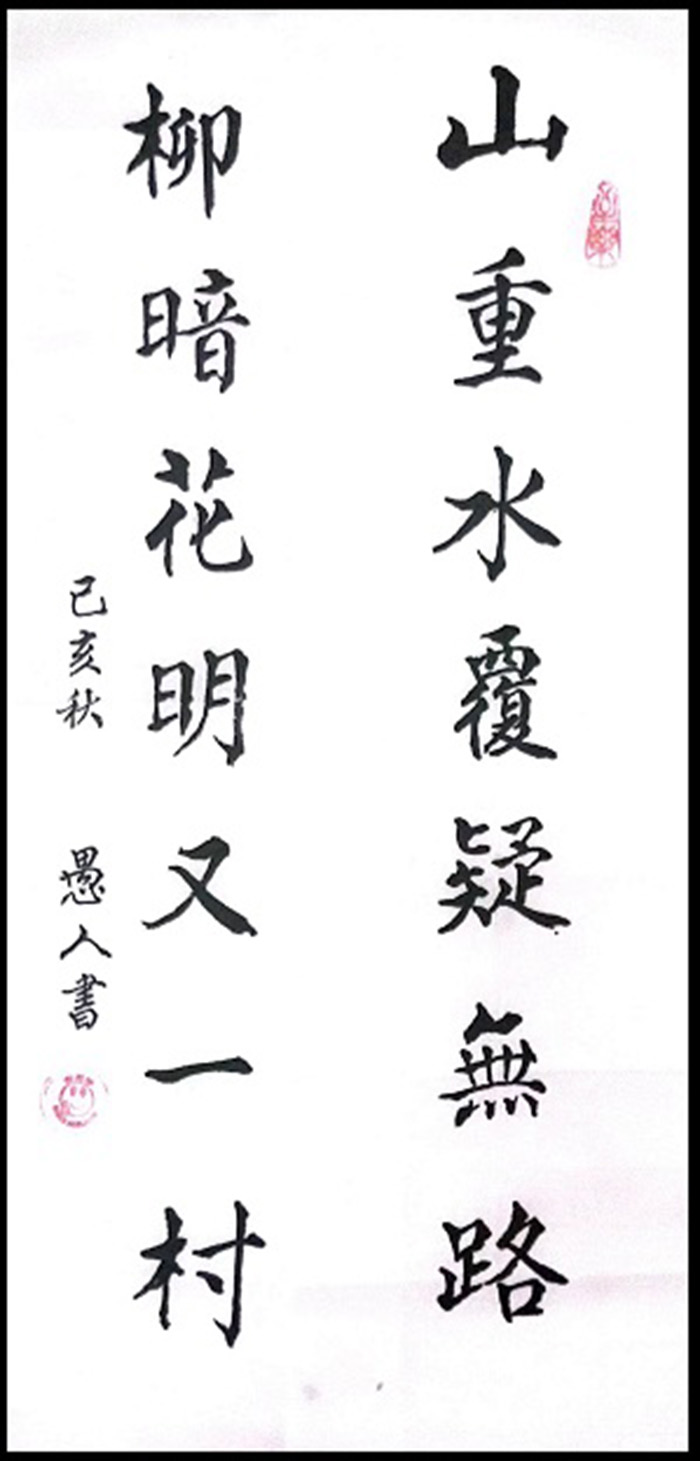 山重水覆疑無路
柳暗花明又一村
己亥秋 愚人書